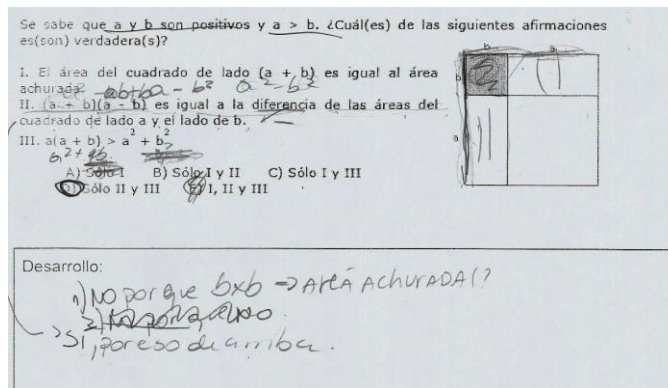 Se sabe que a y b son positivos y a > b. ¿Cuál(es) de las siguientes afirmaciones
es(son) verdadera(s)?
b a
I. El área del cuadrado de lado (a + b) es igual al área
achurada. - b² a² - b²
b
II. (a + b)(a - b) es igual a la diferencia de las áreas del
cuadrado de lado a y el lado de b.
a
III. a(a + b) > a² + b²
a² +
A) Sólo I B) Sólo I y II C) Sólo I y III
D) Sólo II y III E) I, II y III
Desarrollo:
1) No porque bxb → Area Achurada (?
2)
→ Si, por eso de arriba.